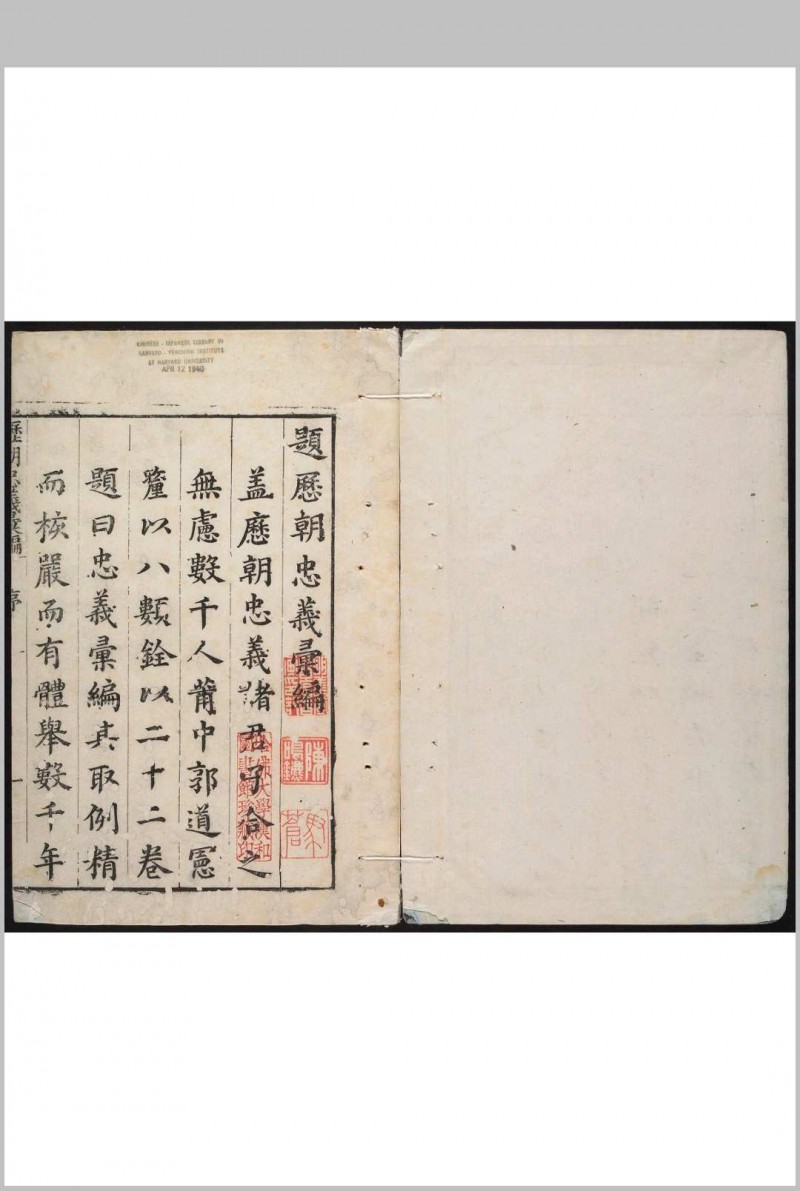 題歷朝忠義彙編
盖歷朝忠義諸君子合之
無慮數千人莆中郭道憲
釐以八類銓以二十二卷
題曰忠義彙編其取例精
而核嚴而有體舉數千年
歷朝忠義彙編
序
一
CHINESE - JAPANESE LIBRARY OF
HARVARD - YENCHING INSTITUTE
AT HARVARD UNIVERSITY
APR 12 1940
哈佛大學漢和圖書館珍藏印